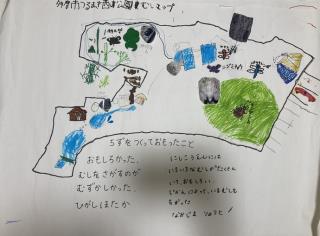 多摩市つるまき西公園 むしマップ
ちずをつくっておもったこと
おもしろかった。
むしをさがすのが
むずかしかった。
ひがしほたか
にしこうえんには
いろいろなむしがたくさん
いて、おもしろい。
じかんによって、いるむしも
ちがった